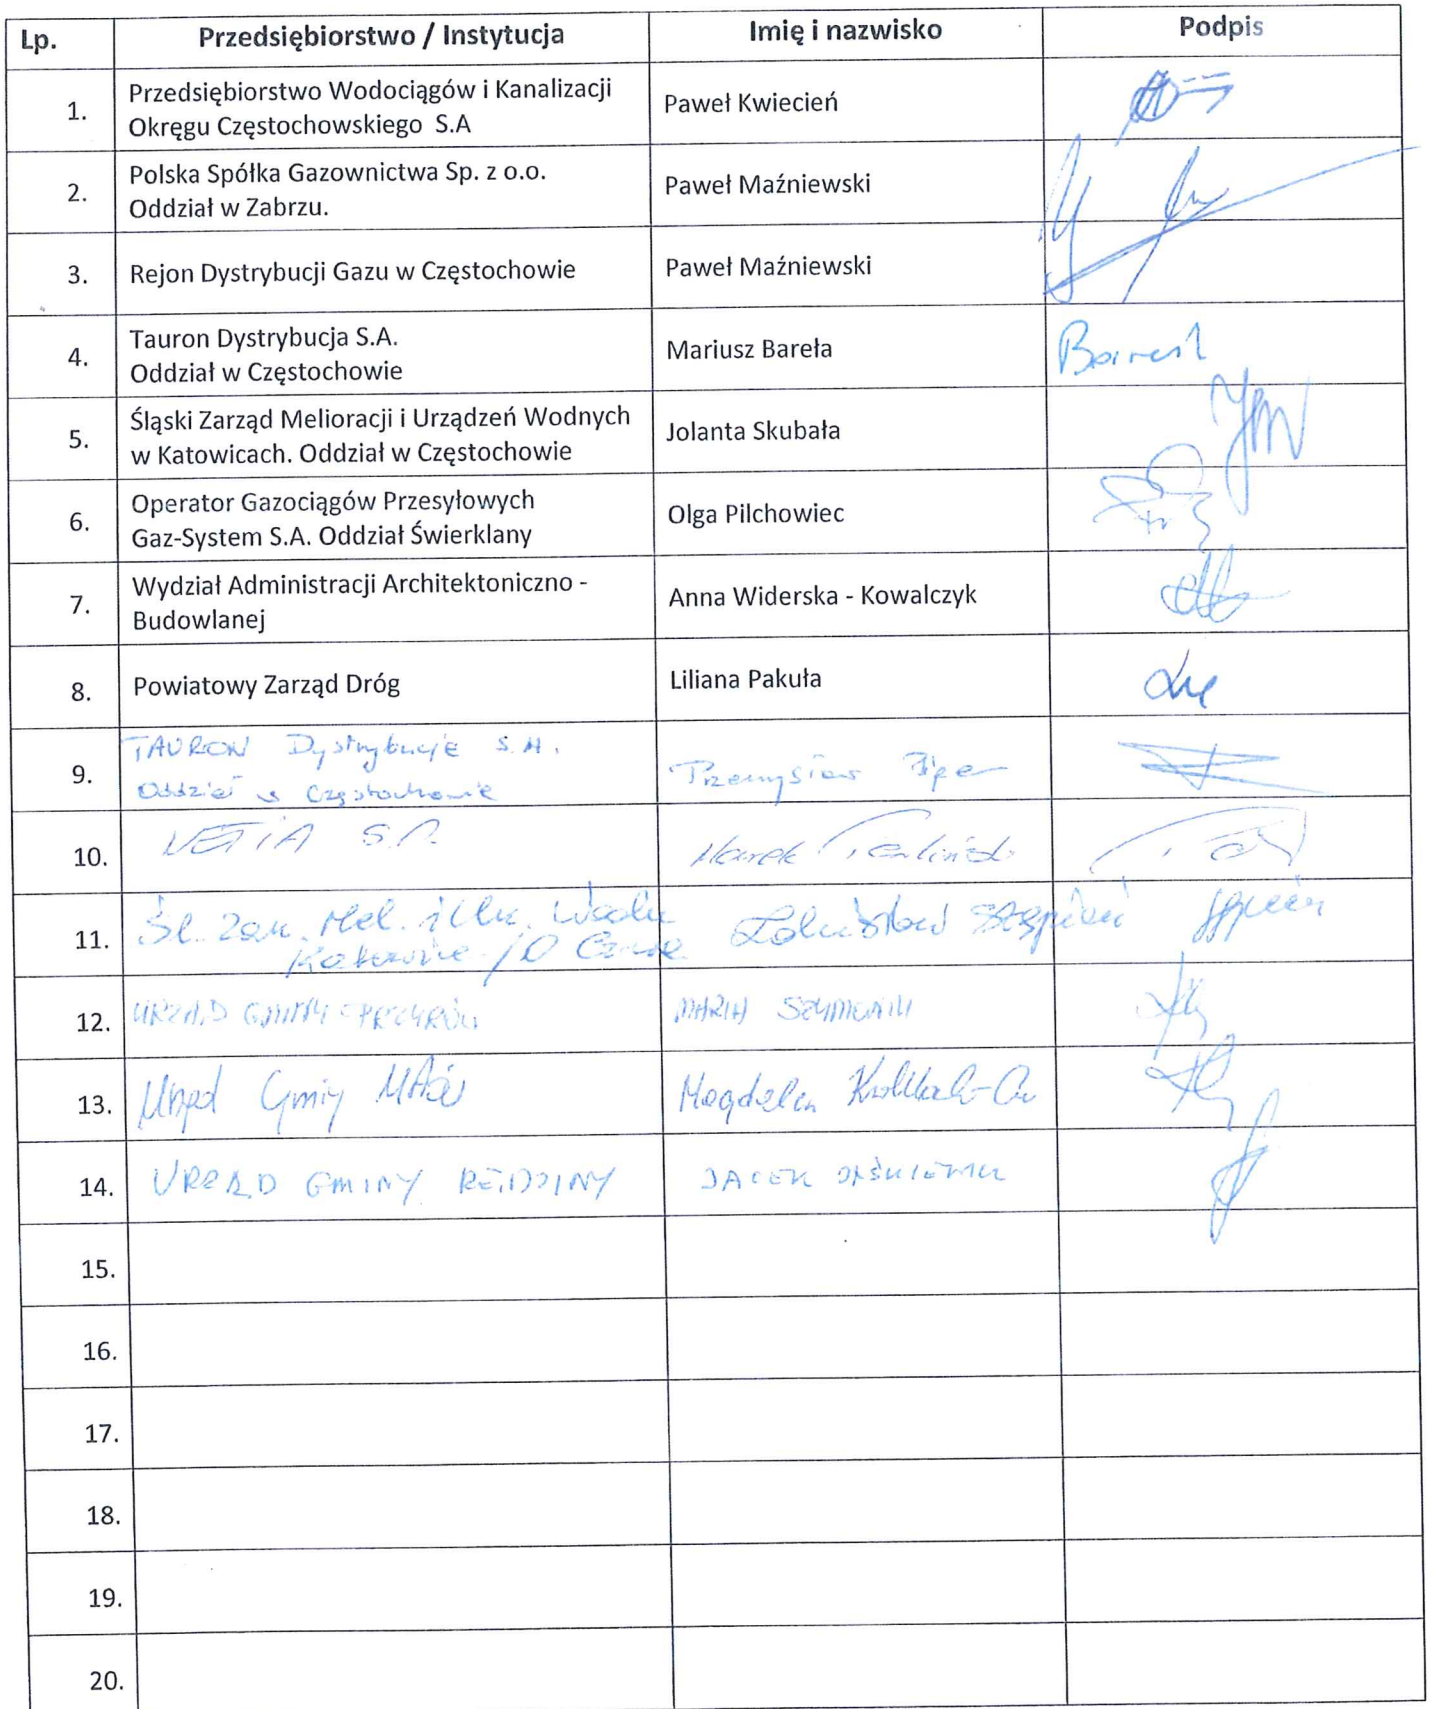 Lp. Przedsiębiorstwo / Instytucja Imię i nazwisko Podpis
1. Przedsiębiorstwo Wodociągów i Kanalizacji
Okręgu Częstochowskiego S.A Paweł Kwiecień
2. Polska Spółka Gazownictwa Sp. z o.o.
Oddział w Zabrzu. Paweł Maźniewski
3. Rejon Dystrybucji Gazu w Częstochowie Paweł Maźniewski
4. Tauron Dystrybucja S.A.
Oddział w Częstochowie Mariusz Bareła
5. Śląski Zarząd Melioracji i Urządzeń Wodnych
w Katowicach. Oddział w Częstochowie Jolanta Skubała
6. Operator Gazociągów Przesyłowych
Gaz-System S.A. Oddział Świerklany Olga Pilchowiec
7. Wydział Administracji Architektoniczno -
Budowlanej Anna Widerska - Kowalczyk
8. Powiatowy Zarząd Dróg Liliana Pakuła
9. TAURON Dystrybucja S.A.
Oddział w Częstochowie Przemysław
10. NETIA S.A. Marek
11. Śl. Zarz. Mel. i
Katowice /O
12. URZĄD GMINY PRZYRÓW MARIA
13. Urząd Gminy Magdalena
14. URZĄD GMINY RĘDZINY JACEK
15.
16.
17.
18.
19.
20.